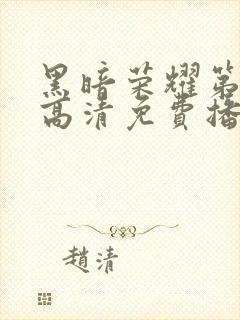 黑暗荣耀第
高清免費播
趙清